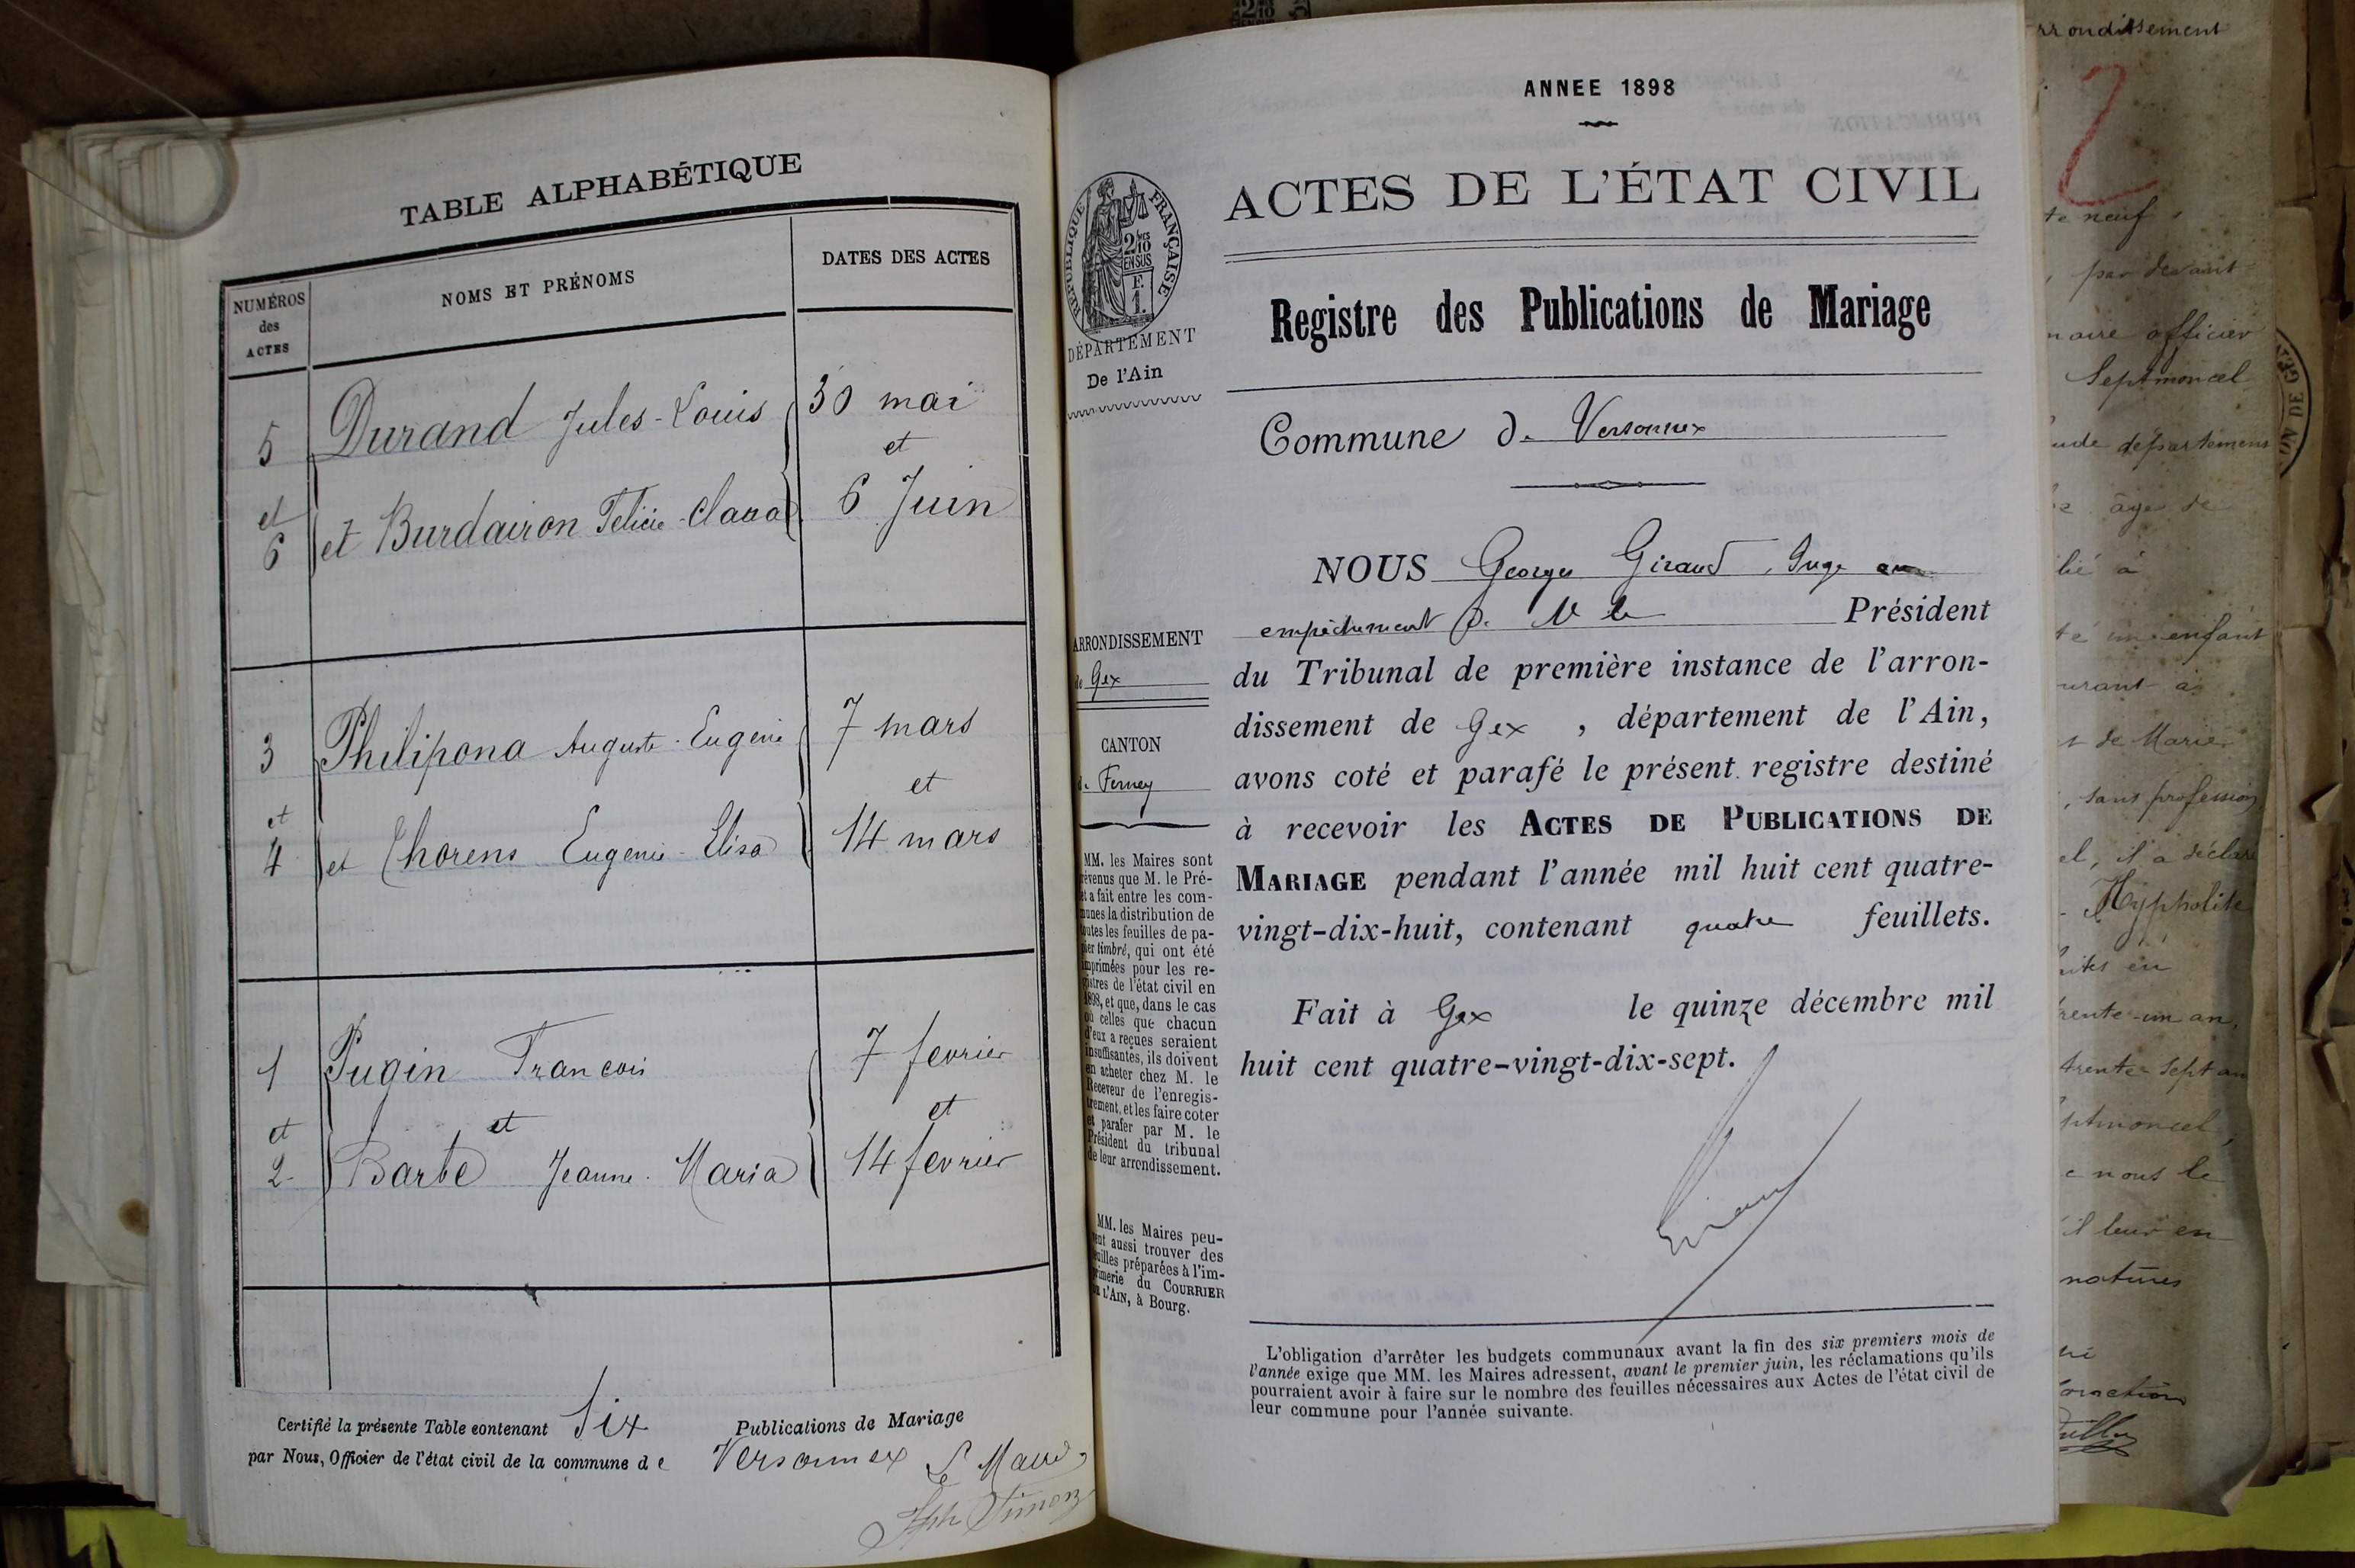 TABLE ALPHABÉTIQUE
NUMÉROS
des
ACTES
NOMS ET PRÉNOMS
DATES DES ACTES
5 Durand Jules-Louis 30 mai
et
et
6 et Burdairon Felicie-Clara 6 Juin
3 Philipona Auguste-Eugène 7 mars
et
et
4 et Thorens Eugenie-Elisa 14 mars
1 Pugin Francois 7 fevrier
et et et
2 Barbe Jeanne-Maria 14 fevrier
Certifié la présente Table contenant Six Publications de Mariage
par Nous, Officier de l'état civil de la commune de Versonnex Le Maire
Simon
ANNEE 1898
RÉPUBLIQUE FRANÇAISE
2/10 EN SUS
F. 1.
DÉPARTEMENT
De l'Ain
ARRONDISSEMENT
de Gex
CANTON
de Ferney
MM. les Maires sont
prévenus que M. le Pré-
fet a fait entre les com-
munes la distribution de
toutes les feuilles de pa-
pier timbré, qui ont été
imprimées pour les re-
gistres de l'état civil en
1898, et que, dans le cas
où celles que chacun
d'eux a reçues seraient
insuffisantes, ils doivent
en acheter chez M. le
Receveur de l'enregis-
trement, et les faire coter
et parafer par M. le
Président du tribunal
de leur arrondissement.
MM. les Maires peu-
vent aussi trouver des
feuilles préparées à l'im-
primerie du COURRIER
DE L'AIN, à Bourg.
ACTES DE L'ÉTAT CIVIL
Registre des Publications de Mariage
Commune de Versonnex
NOUS Georges Giraud, Juge
empêchement de M le Président
du Tribunal de première instance de l'arron-
dissement de Gex, département de l'Ain,
avons coté et parafé le présent registre destiné
à recevoir les ACTES DE PUBLICATIONS DE
MARIAGE pendant l'année mil huit cent quatre-
vingt-dix-huit, contenant quatre feuillets.
Fait à Gex le quinze décembre mil
huit cent quatre-vingt-dix-sept.
Giraud
L'obligation d'arrêter les budgets communaux avant la fin des six premiers mois de
l'année exige que MM. les Maires adressent, avant le premier juin, les réclamations qu'ils
pourraient avoir à faire sur le nombre des feuilles nécessaires aux Actes de l'état civil de
leur commune pour l'année suivante.
rrondissement
2
te neuf
, par devant
maire officier
Septmoncel
département
âgé de
lié à
té un enfant
urant à
et de Marie
, sans profession
el, il a déclaré
Hyppolite
faites en
trente-un an,
trente sept an
ptmoncel,
e nous le
il leur en
natures